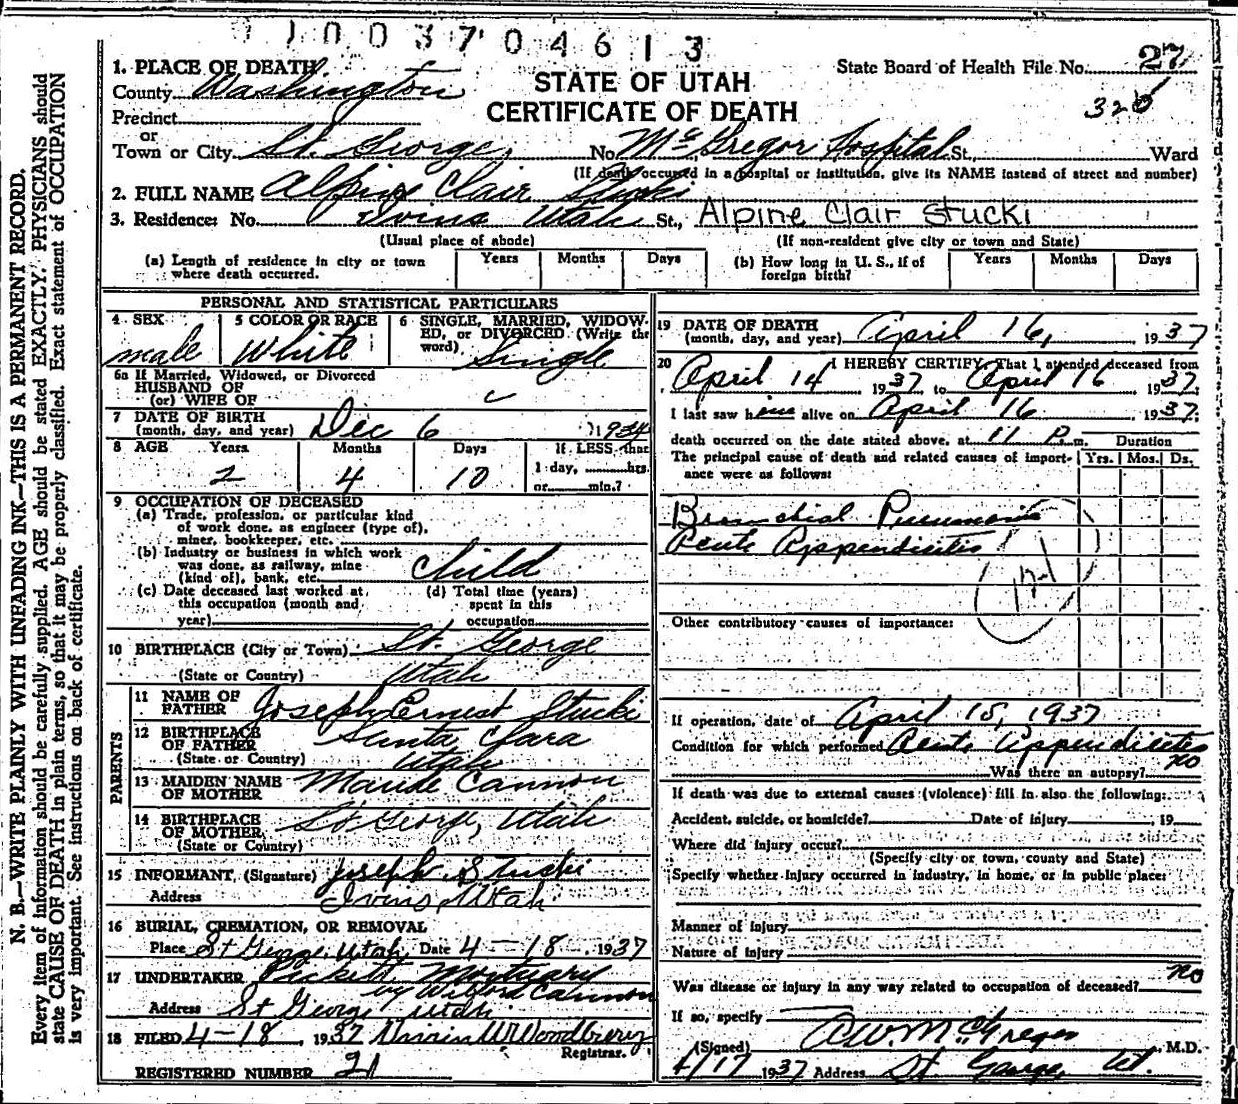 1003704613
1. PLACE OF DEATH
STATE OF UTAH
CERTIFICATE OF DEATH
State Board of Health File No. 27
326
County Washington
Precinct
or
Town or City St. George, No. McGregor Hospital St., Ward
(If death occurred in a hospital or institution, give its NAME instead of street and number)
2. FULL NAME Alpine Clair Stucki
3. Residence: No. Ivins Utah St., Alpine Clair Stucki
(Usual place of abode) (If non-resident give city or town and State)
(a) Length of residence in city or town where death occurred. Years Months Days
(b) How long in U. S., if of foreign birth? Years Months Days
PERSONAL AND STATISTICAL PARTICULARS
4 SEX male
5 COLOR OR RACE White
6 SINGLE, MARRIED, WIDOWED, or DIVORCED (Write the word) Single
6a If Married, Widowed, or Divorced
HUSBAND OF
(or) WIFE OF
7 DATE OF BIRTH
(month, day, and year) Dec 6 1934
8 AGE Years Months Days If LESS than
2 4 10 1 day, hrs.
or min.?
9 OCCUPATION OF DECEASED
(a) Trade, profession, or particular kind
of work done, as engineer (type of),
miner, bookkeeper, etc.
(b) Industry or business in which work
was done, as railway, mine
(kind of), bank, etc. Child
(c) Date deceased last worked at
this occupation (month and
year)
(d) Total time (years)
spent in this
occupation
10 BIRTHPLACE (City or Town) St. George
(State or Country) Utah
PARENTS
11 NAME OF
FATHER Joseph Ernest Stucki
12 BIRTHPLACE
OF FATHER Santa Clara
(State or Country) Utah
13 MAIDEN NAME
OF MOTHER Maude Cannon
14 BIRTHPLACE
OF MOTHER St George, Utah
(State or Country)
15 INFORMANT, (Signature) Joseph Stucki
Address Ivins, Utah
16 BURIAL, CREMATION, OR REMOVAL
Place St George, Utah Date 4-18 1937
17 UNDERTAKER Mortuary
by Wilford Cannon
Address St George Utah
18 FILED 4-18, 1937 W Woodbury
Registrar.
REGISTERED NUMBER 21
19 DATE OF DEATH
(month, day, and year) April 16, 1937
20 I HEREBY CERTIFY, That I attended deceased from
April 14 1937 to April 16 1937
I last saw him alive on April 16 1937
death occurred on the date stated above, at 11 P. m.
The principal cause of death and related causes of importance were as follows:
Duration
Yrs. Mos. Ds.
Bronchial Pneumonia
Acute Appendicitis
121
Other contributory causes of importance:
If operation, date of April 15, 1937
Condition for which performed Acute Appendicitis
Was there an autopsy? no
If death was due to external causes (violence) fill in also the following:
Accident, suicide, or homicide? Date of injury , 19
Where did injury occur?
(Specify city or town, county and State)
Specify whether injury occurred in industry, in home, or in public place:
Manner of injury
Nature of injury
Was disease or injury in any way related to occupation of deceased? no
If so, specify
(Signed) A W. McGregor M.D.
4/17 1937 Address St George, Ut.
N. B.—WRITE PLAINLY WITH UNFADING INK—THIS IS A PERMANENT RECORD.
Every item of information should be carefully supplied. AGE should be stated EXACTLY. PHYSICIANS should
state CAUSE OF DEATH in plain terms, so that it may be properly classified. Exact statement of OCCUPATION
is very important. See instructions on back of certificate.